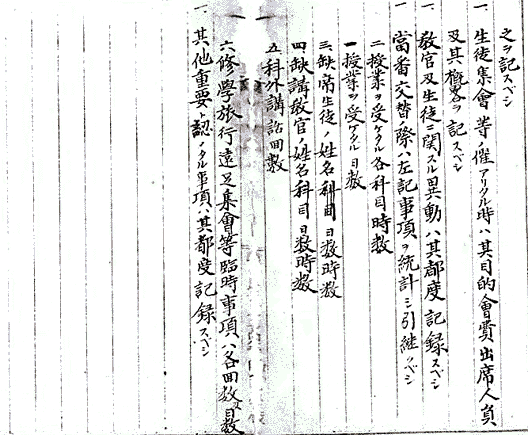 之ヲ記スベシ
一、生徒集會等ノ催アリタル時ハ其目的會費出席人員
及其概畧ヲ記スベシ
一、教官及生徒ニ関スル異動ハ其都度記録スベシ
一、當番交替ノ際ハ左記事項ヲ統計シ引継グベシ
二授業ヲ受ケタル各科目時数
一授業ヲ受ケタル日数
三缺席生徒ノ姓名科目日数時数
四缺講教官ノ姓名科目日数時数
五科外講話回数
六修學旅行遠足集會等臨時事項ハ各回数日数
一、其他重要ト認メタル事項ハ其都度記録スベシ